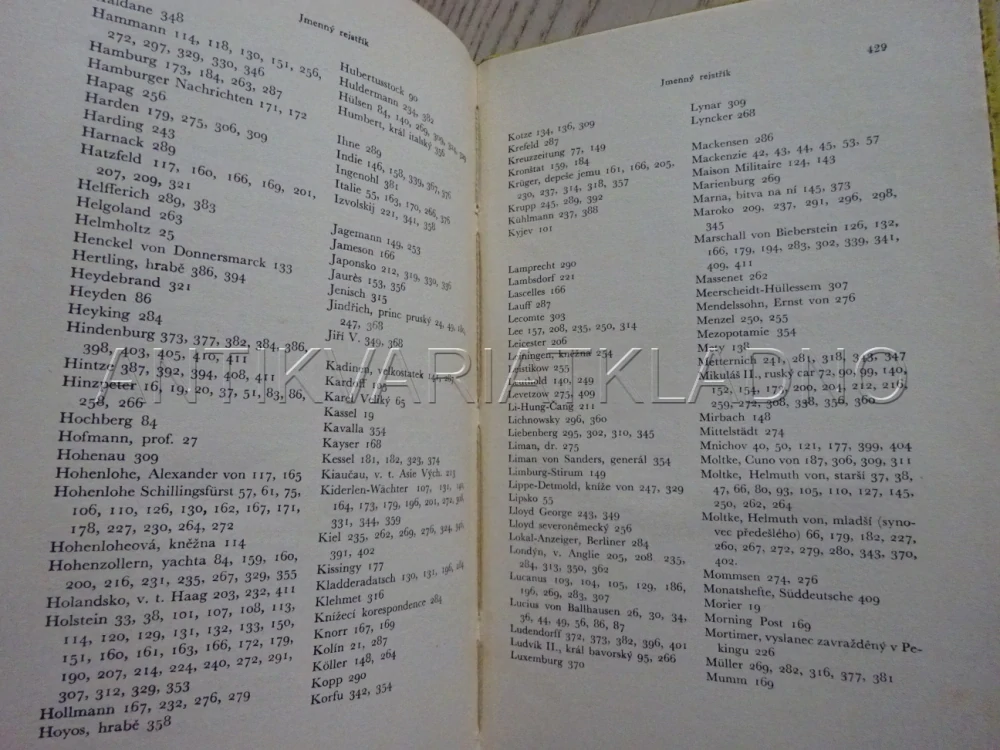 Jmenný rejstřík
Haldane 348
Hammann 114, 118, 130, 151, 256,
272, 297, 329, 330, 346
Hamburg 173, 184, 263, 287
Hamburger Nachrichten 171, 172
Hapag 256
Harden 179, 275, 306, 309
Harding 243
Harnack 289
Hatzfeld 117, 160, 166, 169, 201,
207, 209, 321
Helfferich 289, 383
Helgoland 263
Helmholtz 25
Henckel von Donnersmarck 133
Hertling, hrabě 386, 394
Heydebrand 321
Heyden 86
Heyking 284
Hindenburg 373, 377, 382, 384, 386,
398, 403, 405, 410, 411
Hintze 387, 392, 394, 408, 411
Hinzpeter 16, 19, 20, 37, 51, 83, 86,
258, 266
Hochberg 84
Hofmann, prof. 27
Hohenau 309
Hohenlohe, Alexander von 117, 165
Hohenlohe Schillingsfürst 57, 61, 75,
106, 110, 126, 130, 162, 167, 171,
178, 227, 230, 264, 272
Hohenloheová, kněžna 114
Hohenzollern, yachta 84, 159, 160,
200, 216, 231, 235, 267, 329, 355
Holandsko, v. t. Haag 203, 232, 411
Holstein 33, 38, 101, 107, 108, 113,
114, 120, 129, 131, 132, 133, 150,
151, 160, 161, 163, 166, 172, 179,
190, 207, 214, 224, 240, 272, 291,
307, 312, 329, 353
Hollmann 167, 232, 276, 279
Hoyos, hrabě 358
Hubertusstock 90
Huldermann 234, 382
Hülsen 84, 140, 269, 309,
Humbert, král italský 356
Ihne 289
Indie 146, 158, 339, 367, 376
Ingenohl 381
Italie 55, 163, 170, 266, 376
Izvolskij 221, 341, 358
Jagemann 149, 253
Jameson 166
Japonsko 212, 319, 330, 336
Jaurès 153, 356
Jenisch 315
Jindřich, princ pruský 24, 49,
247, 368
Jiří V. 349, 368
Kadinen, velkostatek
Kardoff
Karel Veliký 65
Kassel 19
Kavalla 354
Kayser 168
Kessel 181, 182, 323, 374
Kiaučau, v. t. Asie Vých. 213
Kiderlen-Wächter 107, 131,
164, 173, 179, 196, 201, 272, 306,
331, 344, 359
Kiel 235, 262, 269, 276, 324,
391, 402
Kissingy 177
Kladderadatsch 130, 131, 196, 284
Klehmet 316
Knížecí korespondence 284
Knorr 167, 169
Kolín 21, 287
Köller 148, 264
Kopp 290
Korfu 342, 354
Jmenný rejstřík
429
Kotze 134, 136, 309
Krefeld 287
Kreuzzeitung 77, 149
Kronštat 159, 184
Krüger, depeše jemu 161, 166, 205,
230, 237, 314, 318, 357
Krupp 245, 289, 392
Kühlmann 237, 388
Kyjev 101
Lamprecht 290
Lambsdorf 221
Lascelles 166
Lauff 287
Lecomte 303
Lee 157, 208, 235, 250, 314
Leicester 206
Leiningen, kněžna 254
Leistikow 255
Leuthold 140, 249
Levetzow 275, 409
Li-Hung-Čang 211
Lichnowsky 296, 360
Liebenberg 295, 302, 310, 345
Liman, dr. 275
Liman von Sanders, generál 354
Limburg-Stirum 149
Lippe-Detmold, kníže von 247, 329
Lipsko 55
Lloyd George 243, 349
Lloyd severoněmecký 256
Lokal-Anzeiger, Berliner 284
Londýn, v. Anglie 205, 208, 235,
284, 313, 350, 362
Lucanus 103, 104, 105, 129, 186,
196, 269, 283, 307
Lucius von Ballhausen 26, 30, 34,
36, 44, 49, 56, 86, 87
Ludendorff 372, 373, 382, 396, 401
Ludvík II., král bavorský 95, 266
Luxemburg 370
Lynar 309
Lyncker 268
Mackensen 286
Mackenzie 42, 43, 44, 45, 53, 57
Maison Militaire 124, 143
Marienburg 269
Marna, bitva na ní 145, 373
Maroko 209, 237, 291, 296, 298,
345
Marschall von Bieberstein 126, 132,
166, 179, 194, 283, 302, 339, 341,
409, 411
Massenet 262
Meerscheidt-Hüllessem 307
Mendelssohn, Ernst von 276
Menzel 250, 255
Mezopotamie 354
Mety 138
Metternich 241, 281, 318, 343, 347
Mikuláš II., ruský car 72, 90, 99, 140,
152, 154, 179, 200, 204, 212, 216,
259, 272, 308, 338, 356, 360
Mirbach 148
Mittelstädt 274
Mnichov 40, 50, 121, 177, 399, 404
Moltke, Cuno von 187, 306, 309, 311
Moltke, Helmuth von, starší 37, 38,
47, 66, 80, 93, 105, 110, 127, 145,
250, 262, 264
Moltke, Helmuth von, mladší (syno-
vec předešlého) 66, 179, 182, 227,
260, 267, 272, 279, 280, 343, 370,
402.
Mommsen 274, 276
Monatshefte, Süddeutsche 409
Morier 19
Morning Post 169
Mortimer, vyslanec zavražděný v Pe-
kingu 226
Müller 269, 282, 316, 377, 381
Mumm 169
ANTIKVARIAT KLADNO